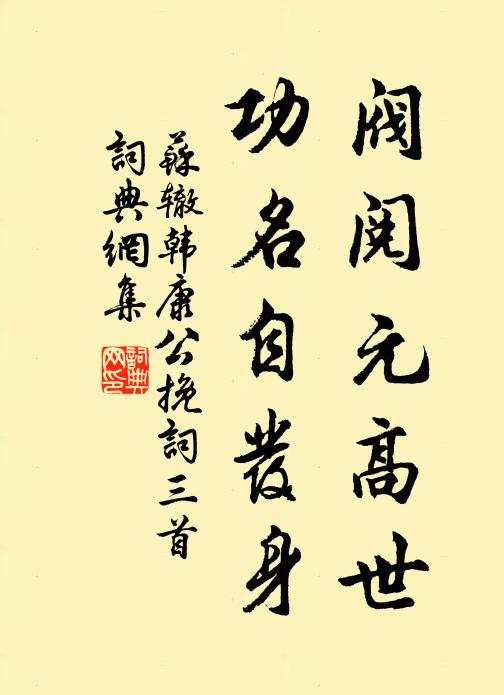 阀阅元高世
功名自發身
蘇辙韩康公挽詞三首
詞典網集
詞典网印